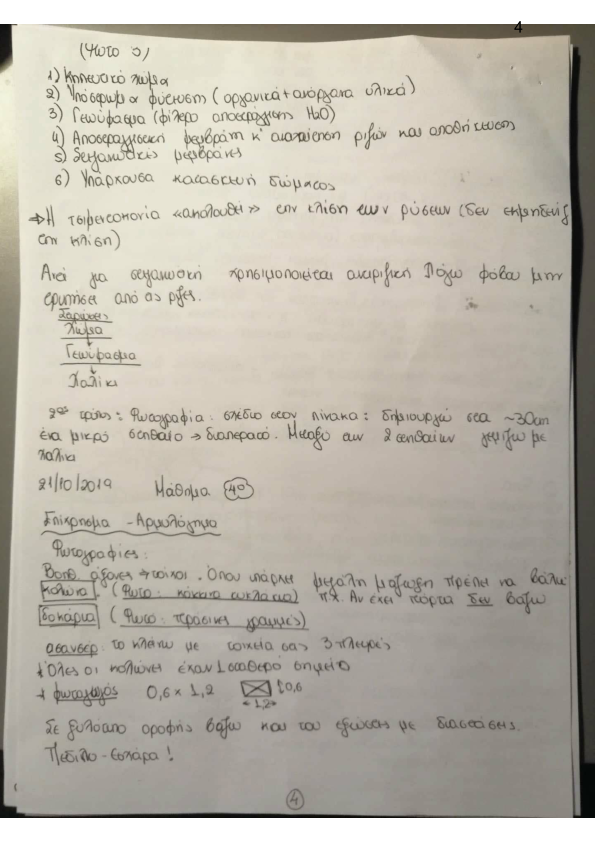 4
(Φωτο 3)
1) Κηπευτικό χώμα
2) Υπόστρωμα φύτευσης (οργανικά + ανόργανα υλικά)
3) Γεωύφασμα (φίλτρο αποστράγγισης H2O)
4) Αποστραγγιστική μεμβράνη κ' αναπαυση ριζών και αποθήκευσης
5) Στεγανωτικές μεμβράνες
6) Υπάρχουσα κατασκευή δώματος
⇒ Η τσιμεντοκονία «ακολουθεί» την κλίση των ρύσεων (δεν μηδενίζ
την κλίση)
Αντί για στεγανωτική χρησιμοποιείται αντιριζική λόγω φόβου μην
τρυπήσει από τις ρίζες.
Χώμα
↓
Γεωύφασμα
↓
Χαλίκι
2ος τρόπος: Φωτογραφία: σχέδιο στον πίνακα: δημιουργώ στα ~30cm
ένα μικρό στηθαίο → διαπερατό. Μεταξύ των 2 στηθαίων γεμίζω με
χαλίκια
21/10/2019 Μάθημα 4ο
Επίχρισμα - Αρμολόγημα
Φωτογραφίες:
Βοηθ. άξονες → τοίχοι. Όπου υπάρχει μεγάλη μάζωξη πρέπει να βάλω
κολώνα. (Φωτο: κόκκινα κυκλάκια) πχ. Αν έχει πόρτα δεν βάζω
δοκάρια (Φωτο: πράσινες γραμμές)
ασανσέρ: το κλείνω με τοιχεία στις 3 πλευρές
* Όλες οι κολώνες έχουν 1 σταθερό σημείο
* φωταγωγός 0,6 x 1,2 0,6
1,2
Σε ξυλότυπο οροφής βάζω και του εξώστες με διαστάσεις.
Πέδιλο - Εσχάρα!
4